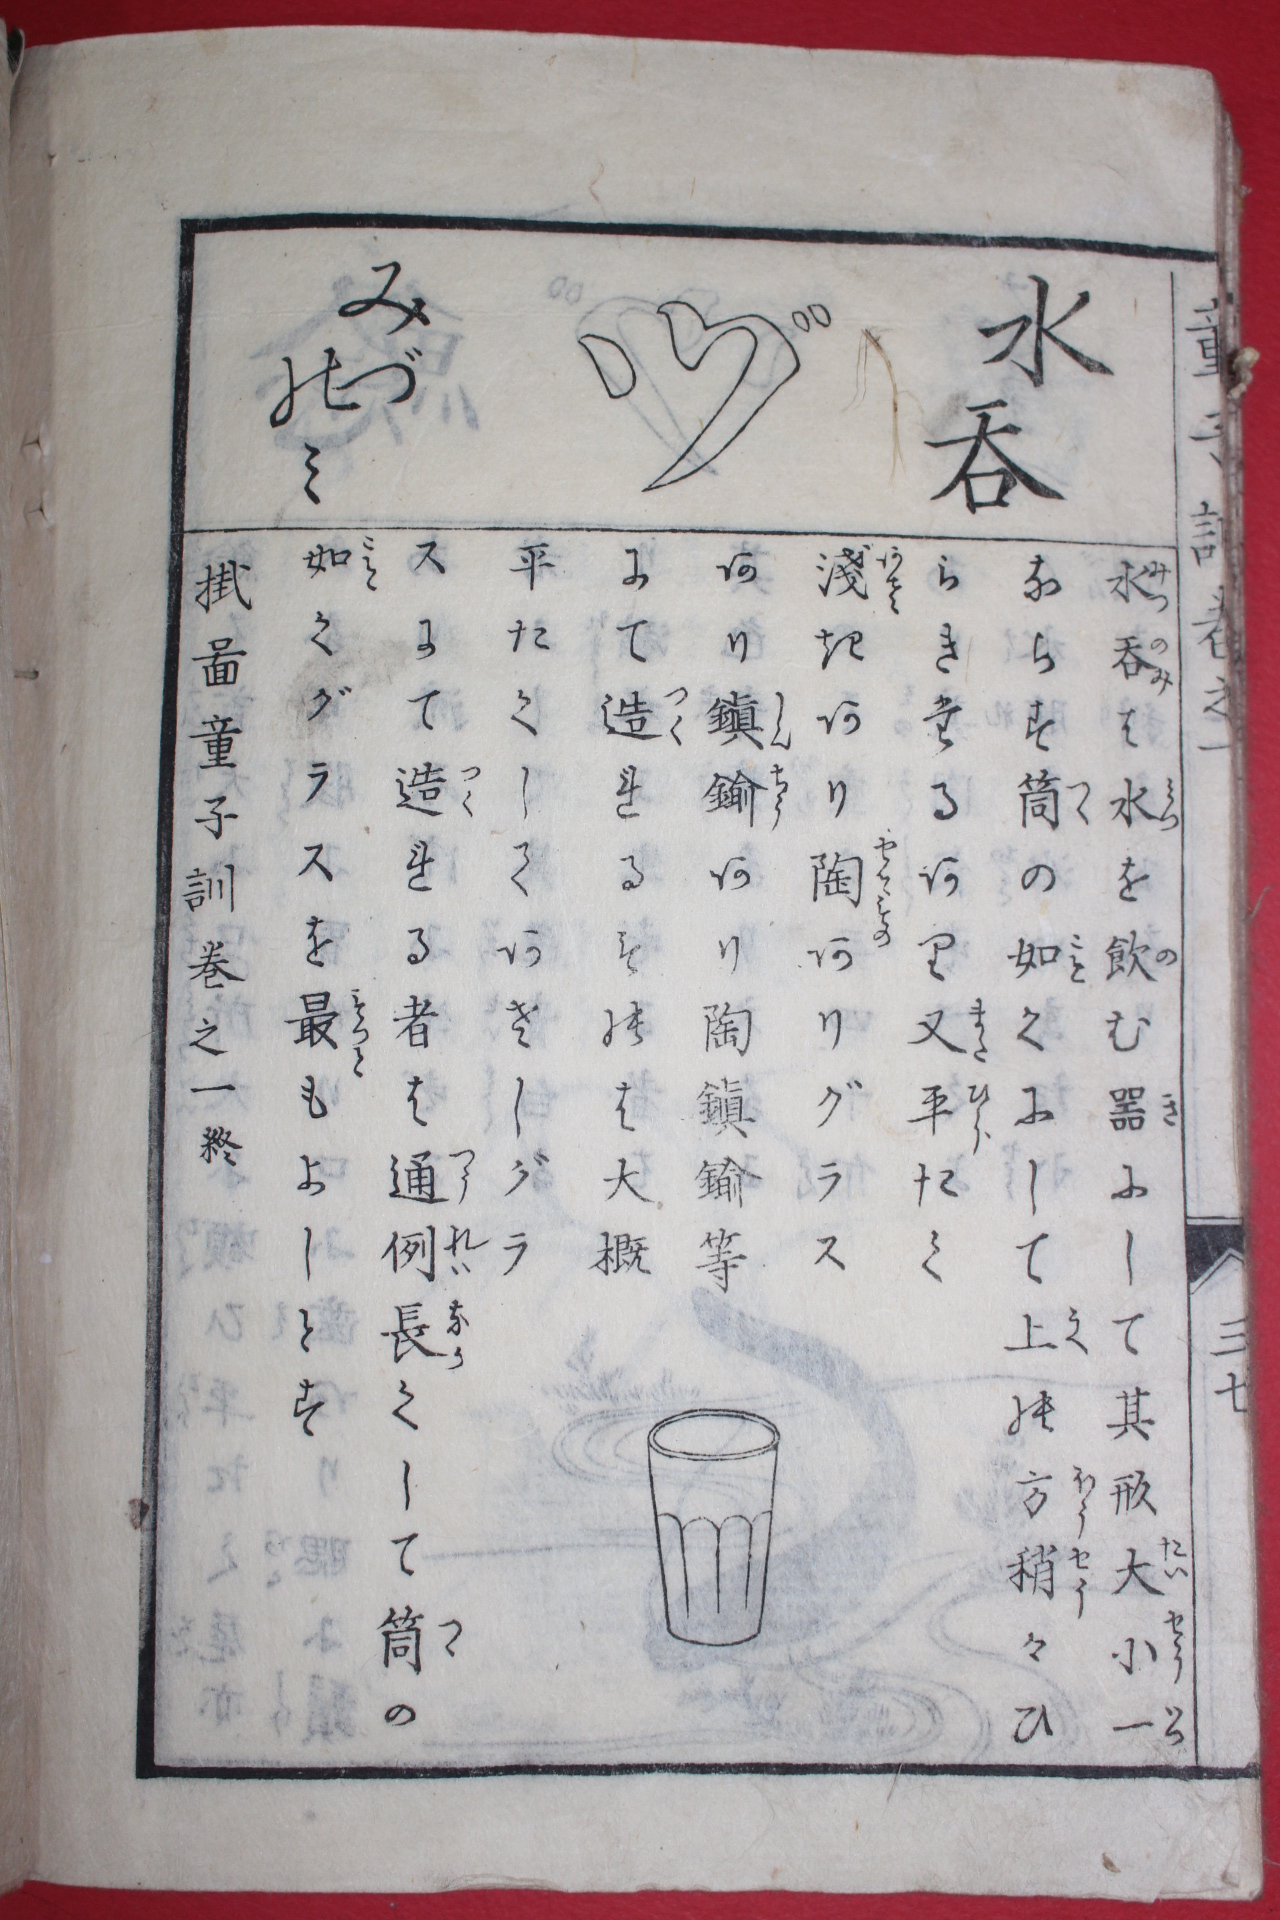 水呑
ヅ
みづのミ
水呑は水を飲む器にして其形大小一
ならず筒の如くにして上の方稍々ひ
らきたるあり又平たく
淺きあり陶ありグラス
あり鎮鍮あり陶鎮鍮等
にて造れるものは大概
平たくしてあさしグラ
スにて造れる者は通例長くして筒の
如くグラスを最もよしとす
掛畾童子訓巻之一終
童子訓巻之一
三七